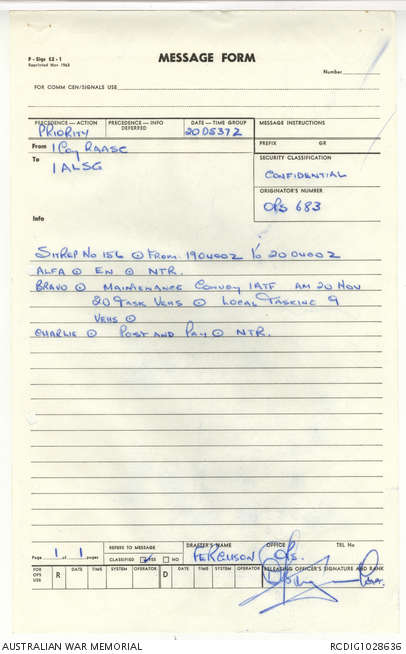 P - Sigs EZ - 1
Reprinted Nov 1963
MESSAGE FORM
Number
FOR COMM CEN/SIGNALS USE
PRECEDENCE—ACTION PRECEDENCE—INFO DATE—TIME GROUP MESSAGE INSTRUCTIONS
PRIORITY DEFERRED 200537Z
From 1 Coy RAASC PREFIX GR
To 1 ALSG SECURITY CLASSIFICATION
CONFIDENTIAL
ORIGINATOR'S NUMBER
OPS 683
Info
SITREP No 156 ⊙ FROM 190400Z TO 200400Z
ALFA ⊙ EN ⊙ NTR.
BRAVO ⊙ MAINTENANCE CONVOY 1ATF AM 20 NOV
20 TASK VEHS ⊙ LOCAL TASKING 9
VEHS ⊙
CHARLIE ⊙ POST AND PAY ⊙ NTR.
Page 1 of 1 pages REFERS TO MESSAGE DRAFTER'S NAME OFFICE TEL No
CLASSIFIED YES NO FERGUSON OPS.
FOR OPS USE R DATE TIME SYSTEM OPERATOR D DATE TIME SYSTEM OPERATOR RELEASING OFFICER'S SIGNATURE AND RANK
AUSTRALIAN WAR MEMORIAL RCDIG1028636